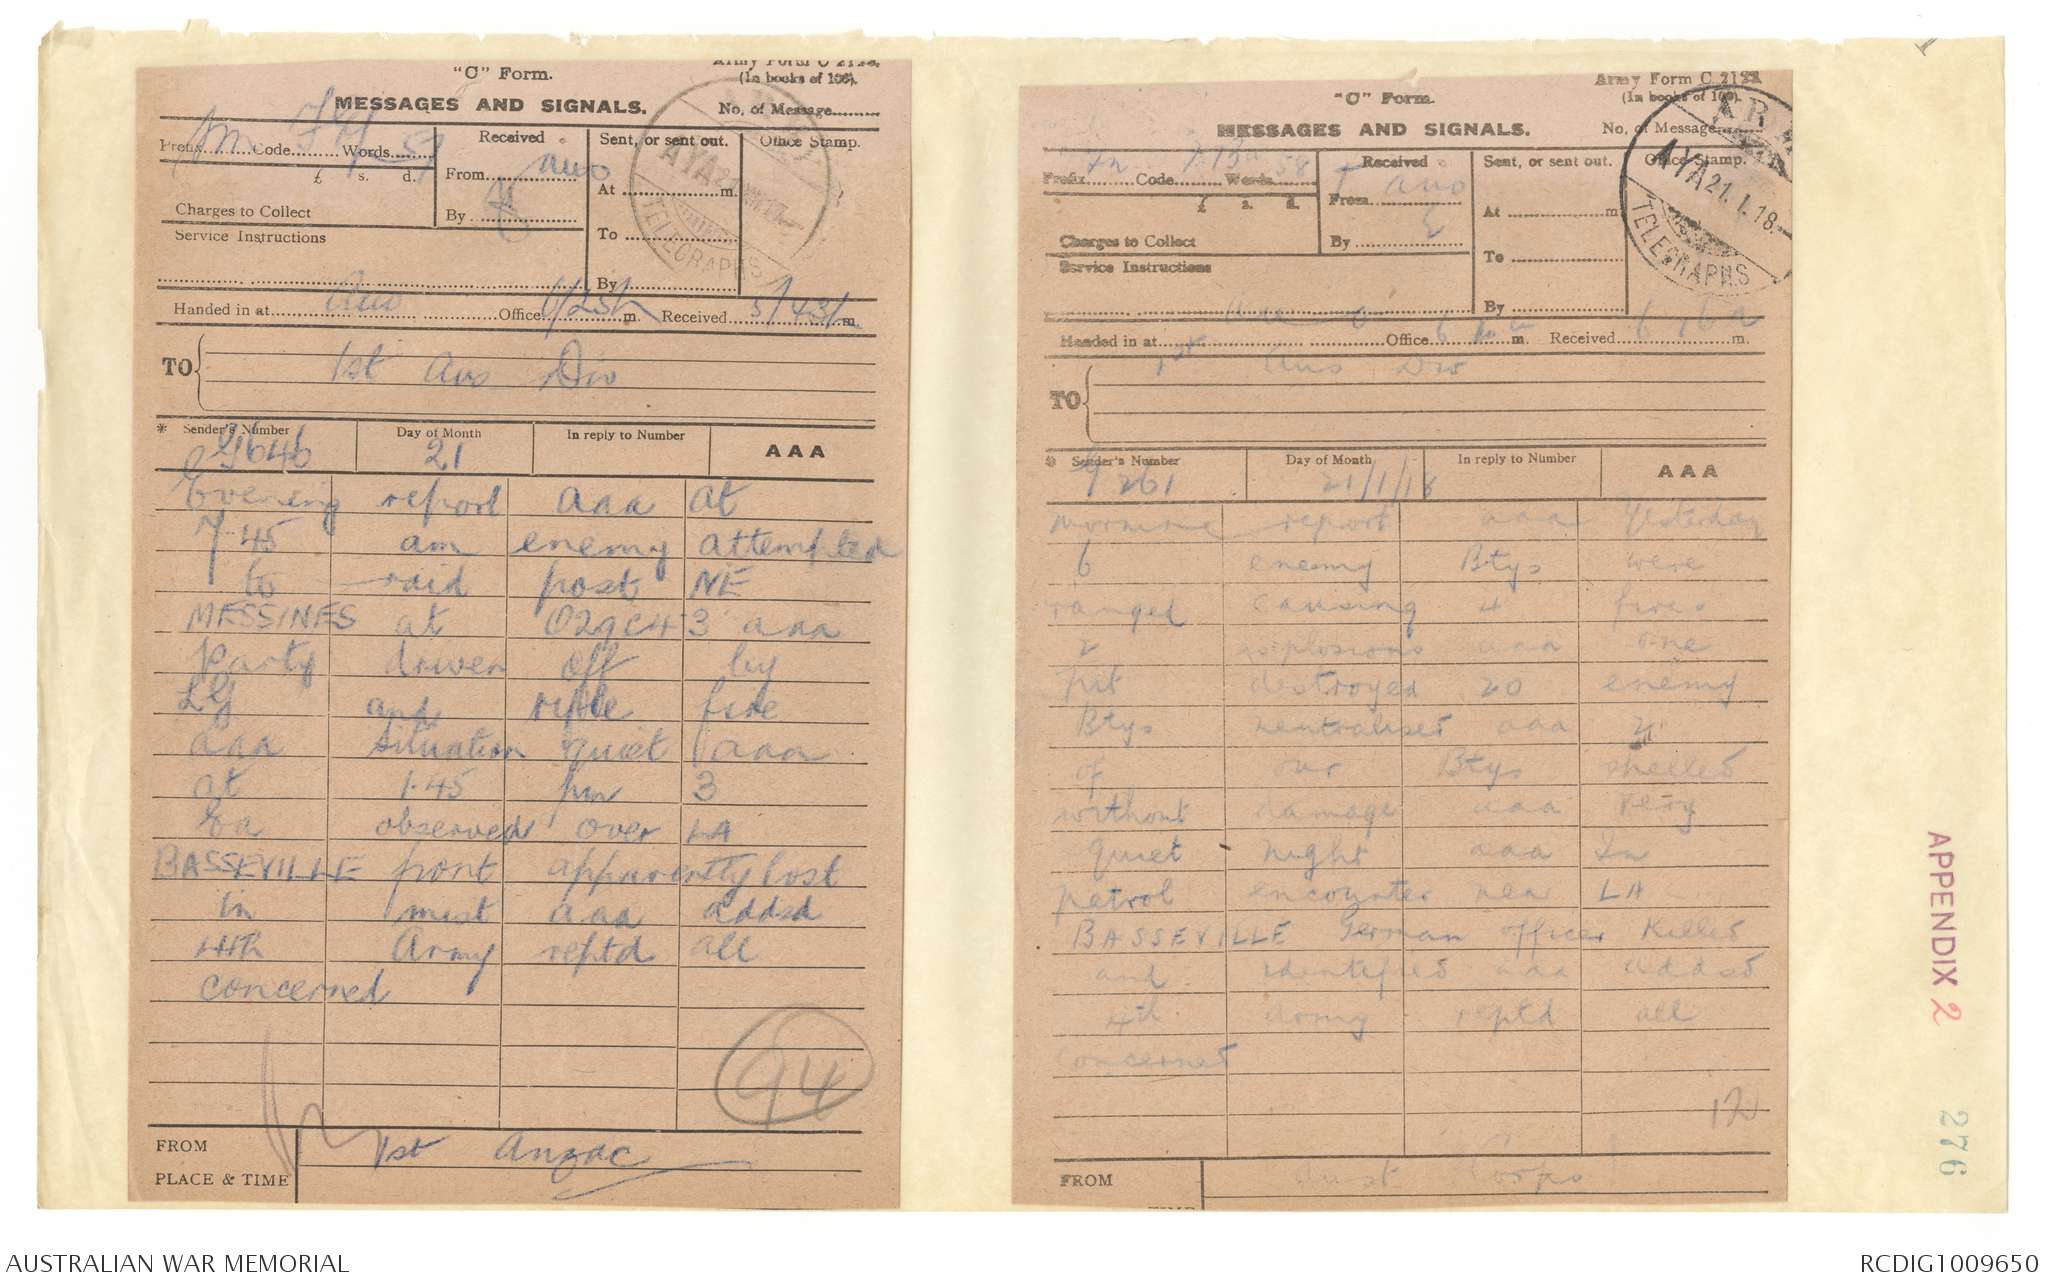 "C" Form.
Army Form C 2123.
(In books of 100).
MESSAGES AND SIGNALS.
No. of Message
Prefix Sm Code Words 51
£ s. d.
Charges to Collect
Service Instructions
Received
From awo
By
Sent, or sent out.
At m.
To
By
Office Stamp.
AYA
TELEGRAPHS
Handed in at Awo Office m. Received m.
TO 1st Aus Div
* Sender's Number Day of Month In reply to Number AAA
G646 21
Evening report aaa at
7.45 am enemy attempted
to raid post NE
MESSINES at O29c43 aaa
Party driven off by
LG and rifle fire
aaa Situation quiet aaa
at 1.45 pm 3
Ea observed over LA
BASSEVILLE front apparently lost
in mist aaa added
4th Army reptd all
concerned
94
FROM 1st Anzac
PLACE & TIME
"C" Form.
Army Form C. 2123
(In books of 100).
MESSAGES AND SIGNALS.
No. of Message
Prefix Code Words 58
£ s. d.
Charges to Collect
Service Instructions
Received
From awo
By
Sent, or sent out.
At m
To
By
Office Stamp.
AYA 21.1.18.
TELEGRAPHS
Handed in at Office m. Received m.
TO 1st Aus Div
* Sender's Number Day of Month In reply to Number AAA
G 261 21/1/18
morning report aaa Yesterday
6 enemy Btys were
ranged causing 4 fires
2 explosions aaa one
Pit destroyed 20 enemy
Btys neutralised aaa 2
of our Btys shelled
without damage aaa Very
quiet night aaa In
patrol encounter near LA
BASSEVILLE German officer Killed
and identified aaa added
4th army reptd all
concerned
12
FROM Aust Corps
APPENDIX 2
276
AUSTRALIAN WAR MEMORIAL
RCDIG1009650